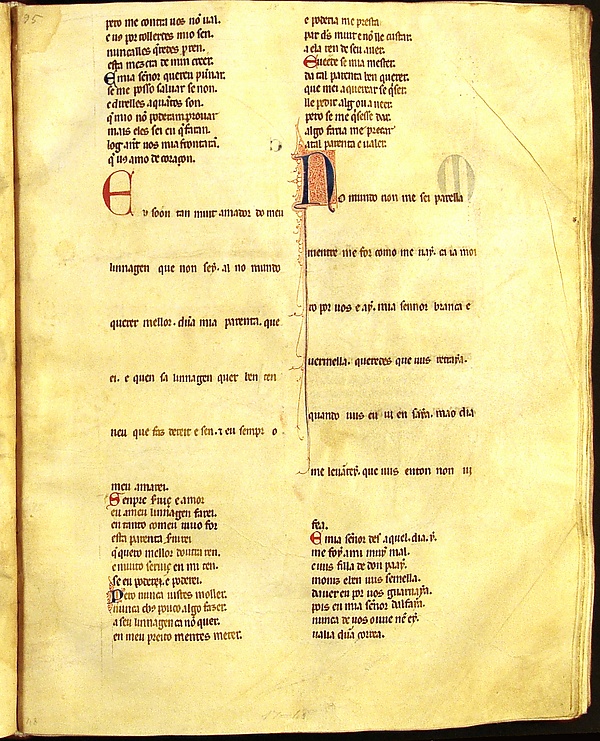 pero me contra uos nõ ual.
e uos por tolledes mio sen.
nuncalles q̃redes p̃ren.
esta mezcra de min creer.
E mia señor quereu punnar.
se me posso saluar se non.
e direlles aquãtos son.
q̃ mio nõ poderam prouar
mais eles sei eu q̃ faran.
log ant uos mia frontarã.
q̃ uos amo de coraçon.
Eu soon tan muit amador do meu
linnagen que non sey. al no mundo
querer mellor. dũa mia parenta. que
ei. e quen sa linnagen quer ben ten
neu que faz dereit e sen. e eu sempr o
meu amarei.
Senpre seruiç e amor
eu a meu linnagen farei.
en tanto com eu uiuo for
esta parenta seruirei
q̃ quero mellor doutra ren.
e muito seruiç en mi ten.
se eu poder. e poderei.
Pero nunca uistes moller.
nunca chus pouco algo fazer.
a seu linnagen ca nõ quer.
en meu preito mentes meter.
e poderia me prestar
par d's muit e nõ lle custar.
a ela ren de seu auer.
E ueede se mia mester.
da tal parenta ben querer.
que mei a queixar se q̃ser.
lle pedir alg ou a ueer.
pero se me q̃sesse dar.
algo faria me preçar
atal parenta e ualer.
No mundo non me sei parella
mentre me for como me uay. ca ia moi
ro por uos e ay. mia sennor branca e
uermella. queredes que uus retraya.
quando uus eu ui en saya. mao dia
me leuãtey. que uus enton non ui
fea.
E mia señor des aquel. dia. y.
me foy. a mi muyn mal.
e uus filla de don paay.
moniz e ben uus semella.
dauer eu por uos guaruaya.
pois eu mia señor dalfaya.
nunca de uos ouue nẽ ey.
ualia dũa correa.